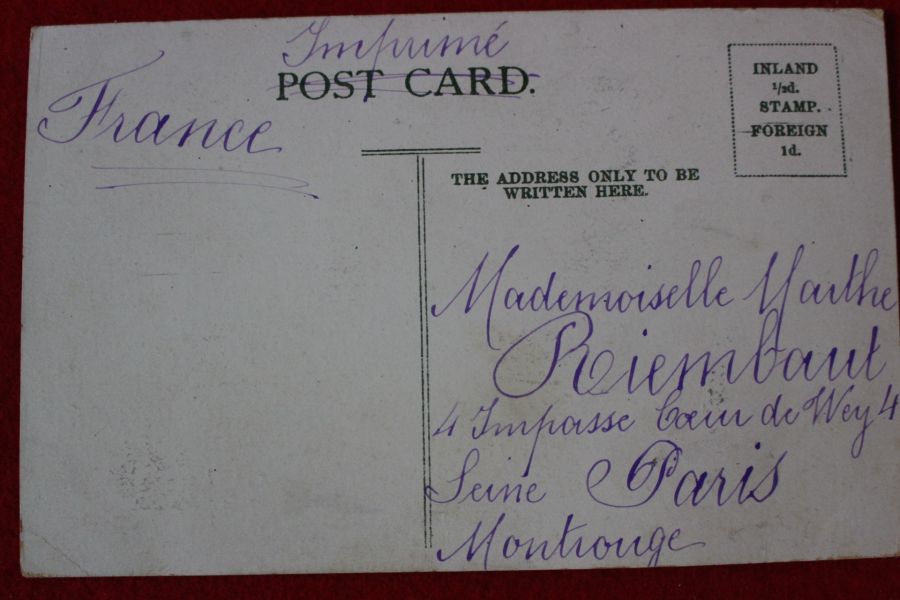 Imprimé
POST CARD.
France
INLAND
1/2d.
STAMP.
FOREIGN
1d.
THE ADDRESS ONLY TO BE
WRITTEN HERE.
Mademoiselle Marthe
Riembaut
4 Impasse Cœur de Wey 4
Seine Paris
Montrouge